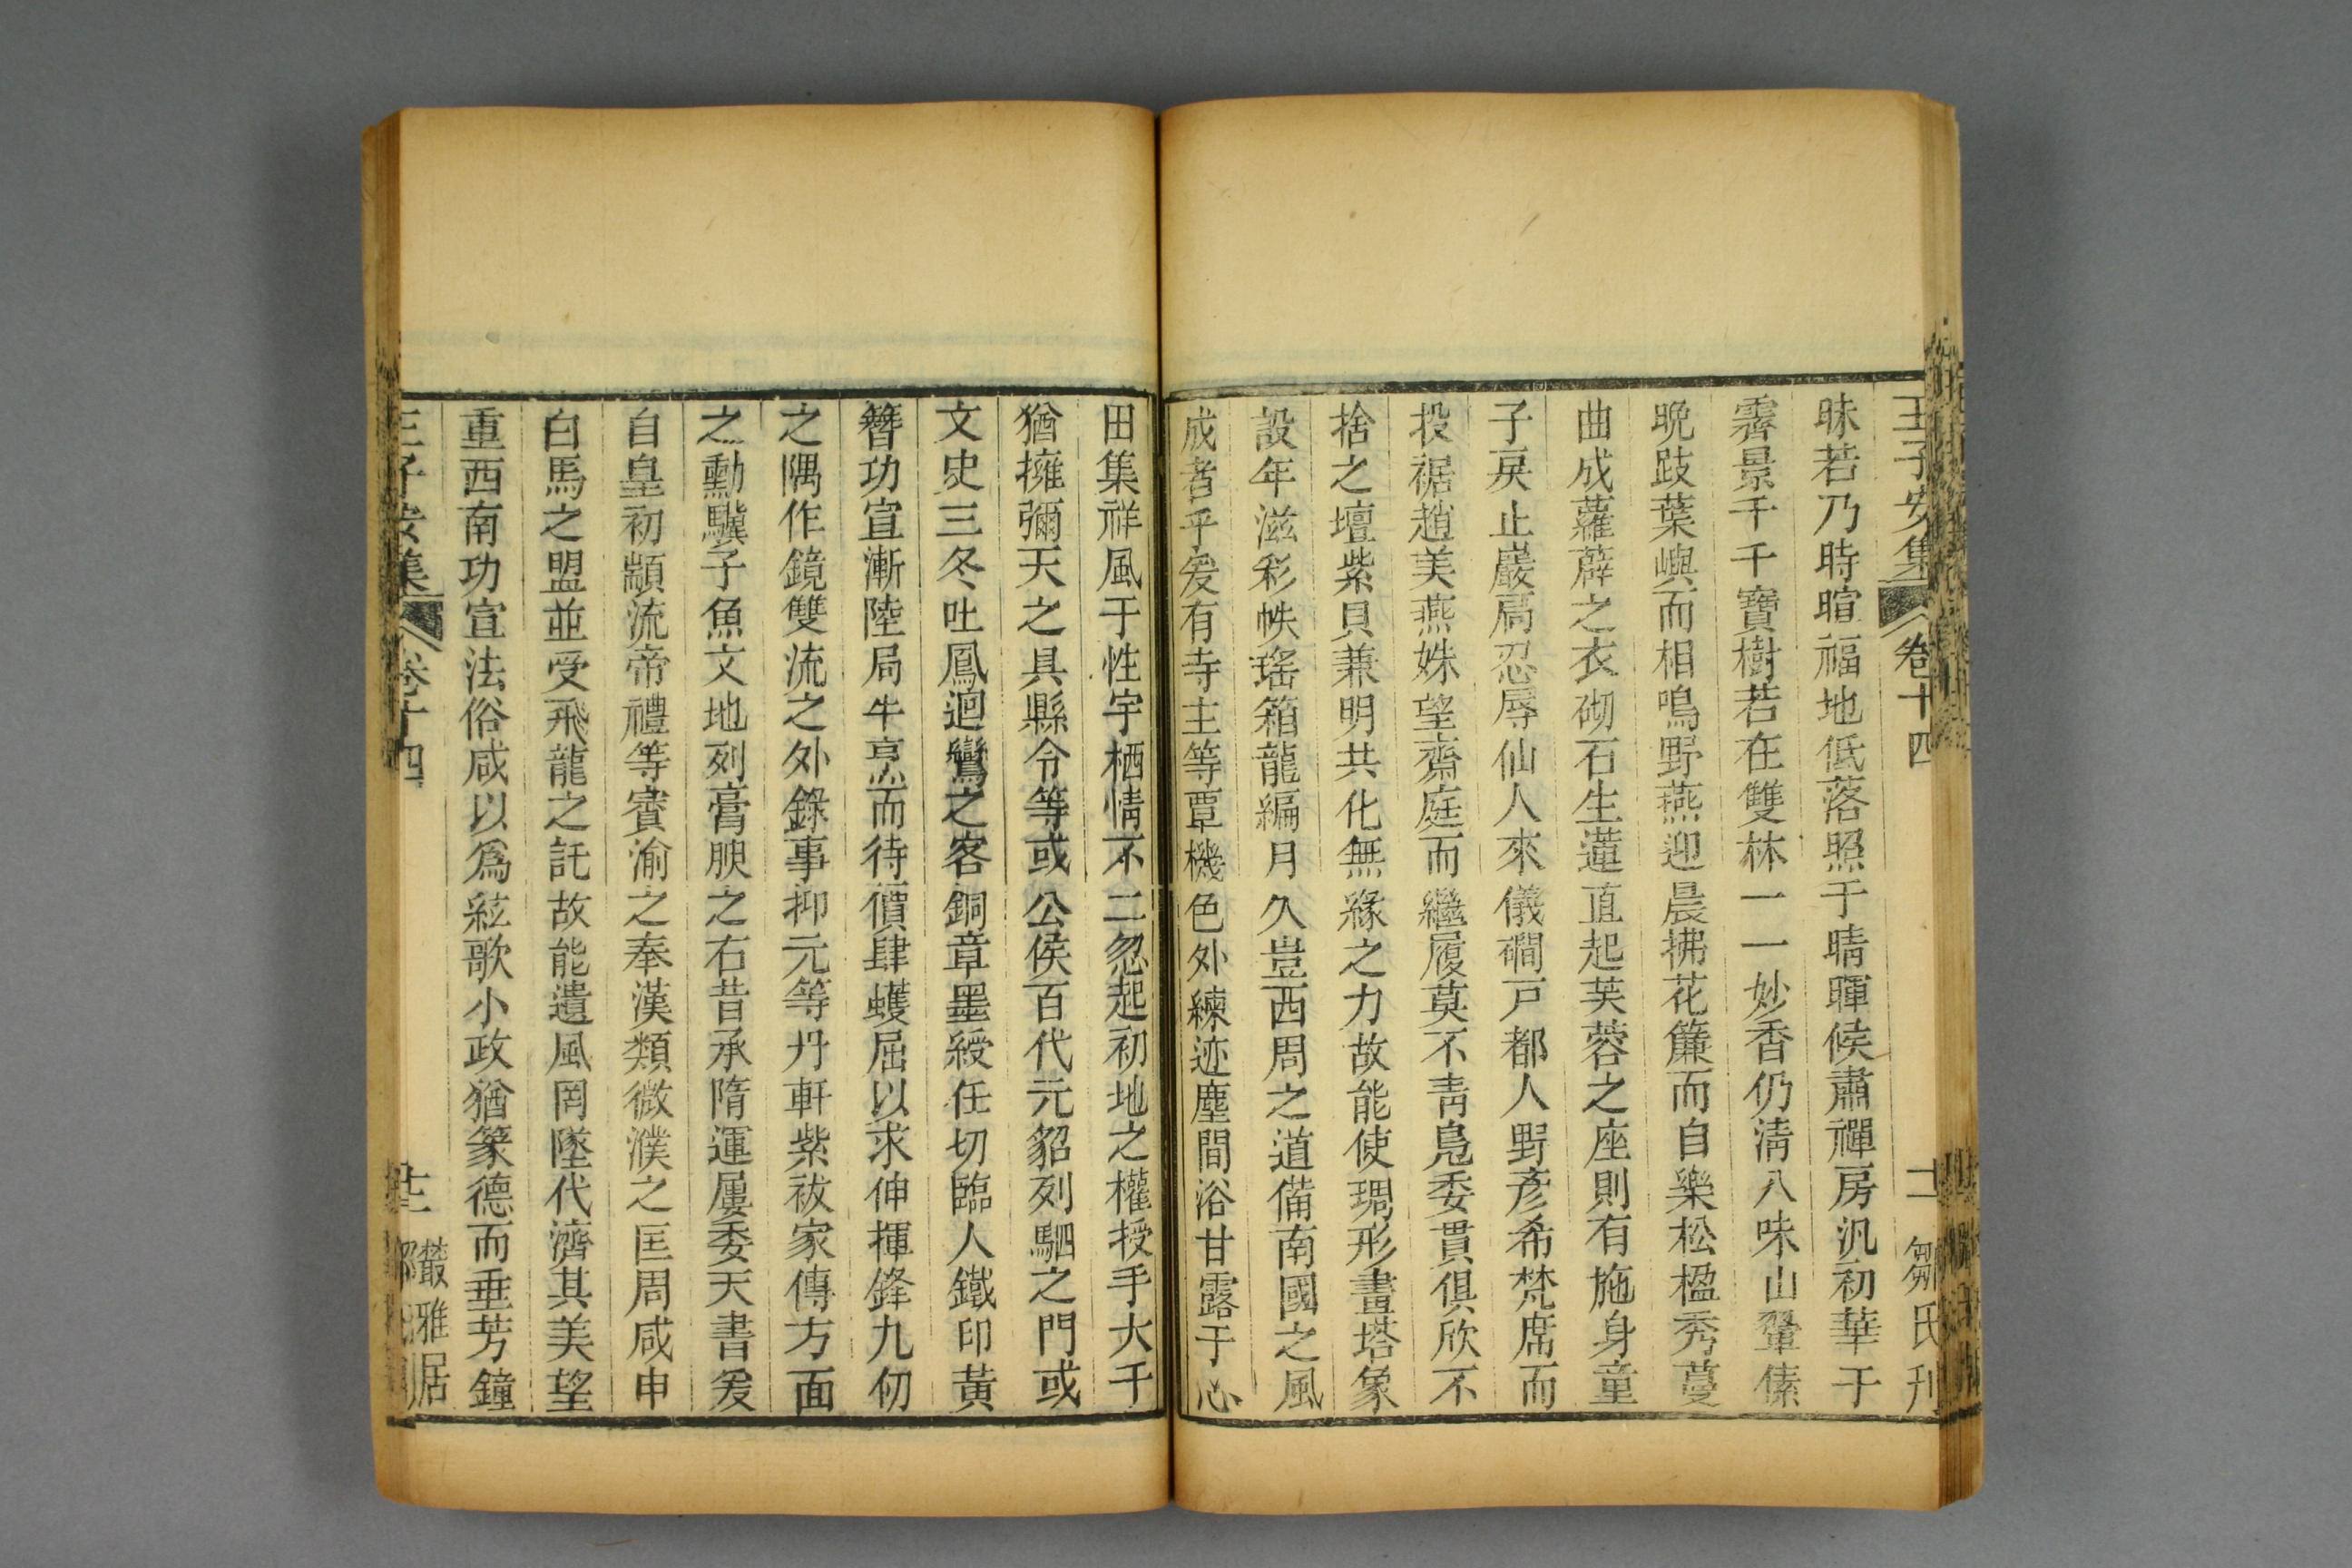 王子安集 卷十四 十一 鄒氏刊
昧若乃時暄福地低落照于晴暉候肅禪房汎初華于
霽景千千寶樹若在雙林一一妙香仍淸八味山翬傃
晩跂葉嶼而相鳴野燕迎晨拂花簾而自樂松楹秀蔓
曲成蘿薜之衣砌石生蓮直起芙蓉之座則有施身童
子戾止巖扃忍辱仙人來儀磵戸都人野彥希梵席而
投裾趙美燕姝望齋庭而繼履莫不靑鳧委貫俱欣不
捨之壇紫貝兼明共化無緣之力故能使琱形畫塔象
設年滋彩帙瑤箱龍編月久豈西周之道備南國之風
成者乎爰有寺主等覃機色外練迹塵間浴甘露于心
田集祥風于性宇栖情不二忽起初地之權授手大千
猶擁彌天之具縣令等或公侯百代元貂列駟之門或
文史三冬吐鳳迴鸞之客銅章墨綬任切臨人鐵印黃
簪功宣漸陸局牛烹而待價肆蠖屈以求伸揮鋒九仞
之隅作鏡雙流之外錄事抑元等丹軒紫祓家傳方面
之勳驥子魚文地列膏腴之右昔承隋運屢委天書爰
自皇初顓流帝禮等賓渝之奉漢類微濮之匡周咸申
白馬之盟並受飛龍之託故能遺風罔墜代濟其美望
重西南功宣法俗咸以爲絃歌小政猶篆德而垂芳鐘
王子安集 卷十四 十二 叢雅居